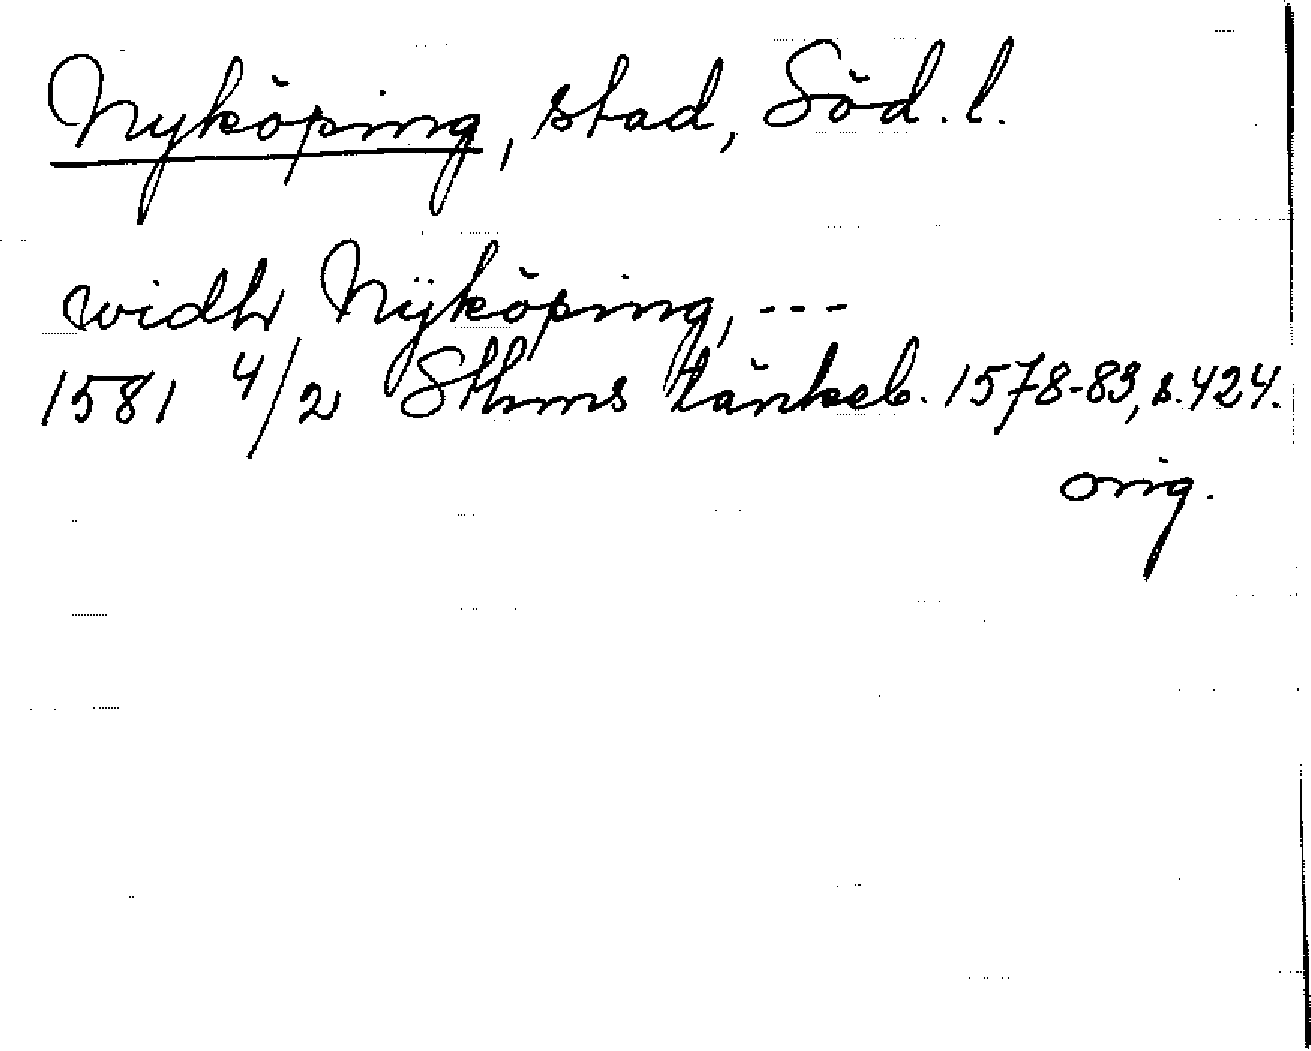 Nyköping, stad, Söd. l.
widh Nÿköping, ---
1581 4/2 Sthms tänkeb. 1578-83, s. 424.
orig.